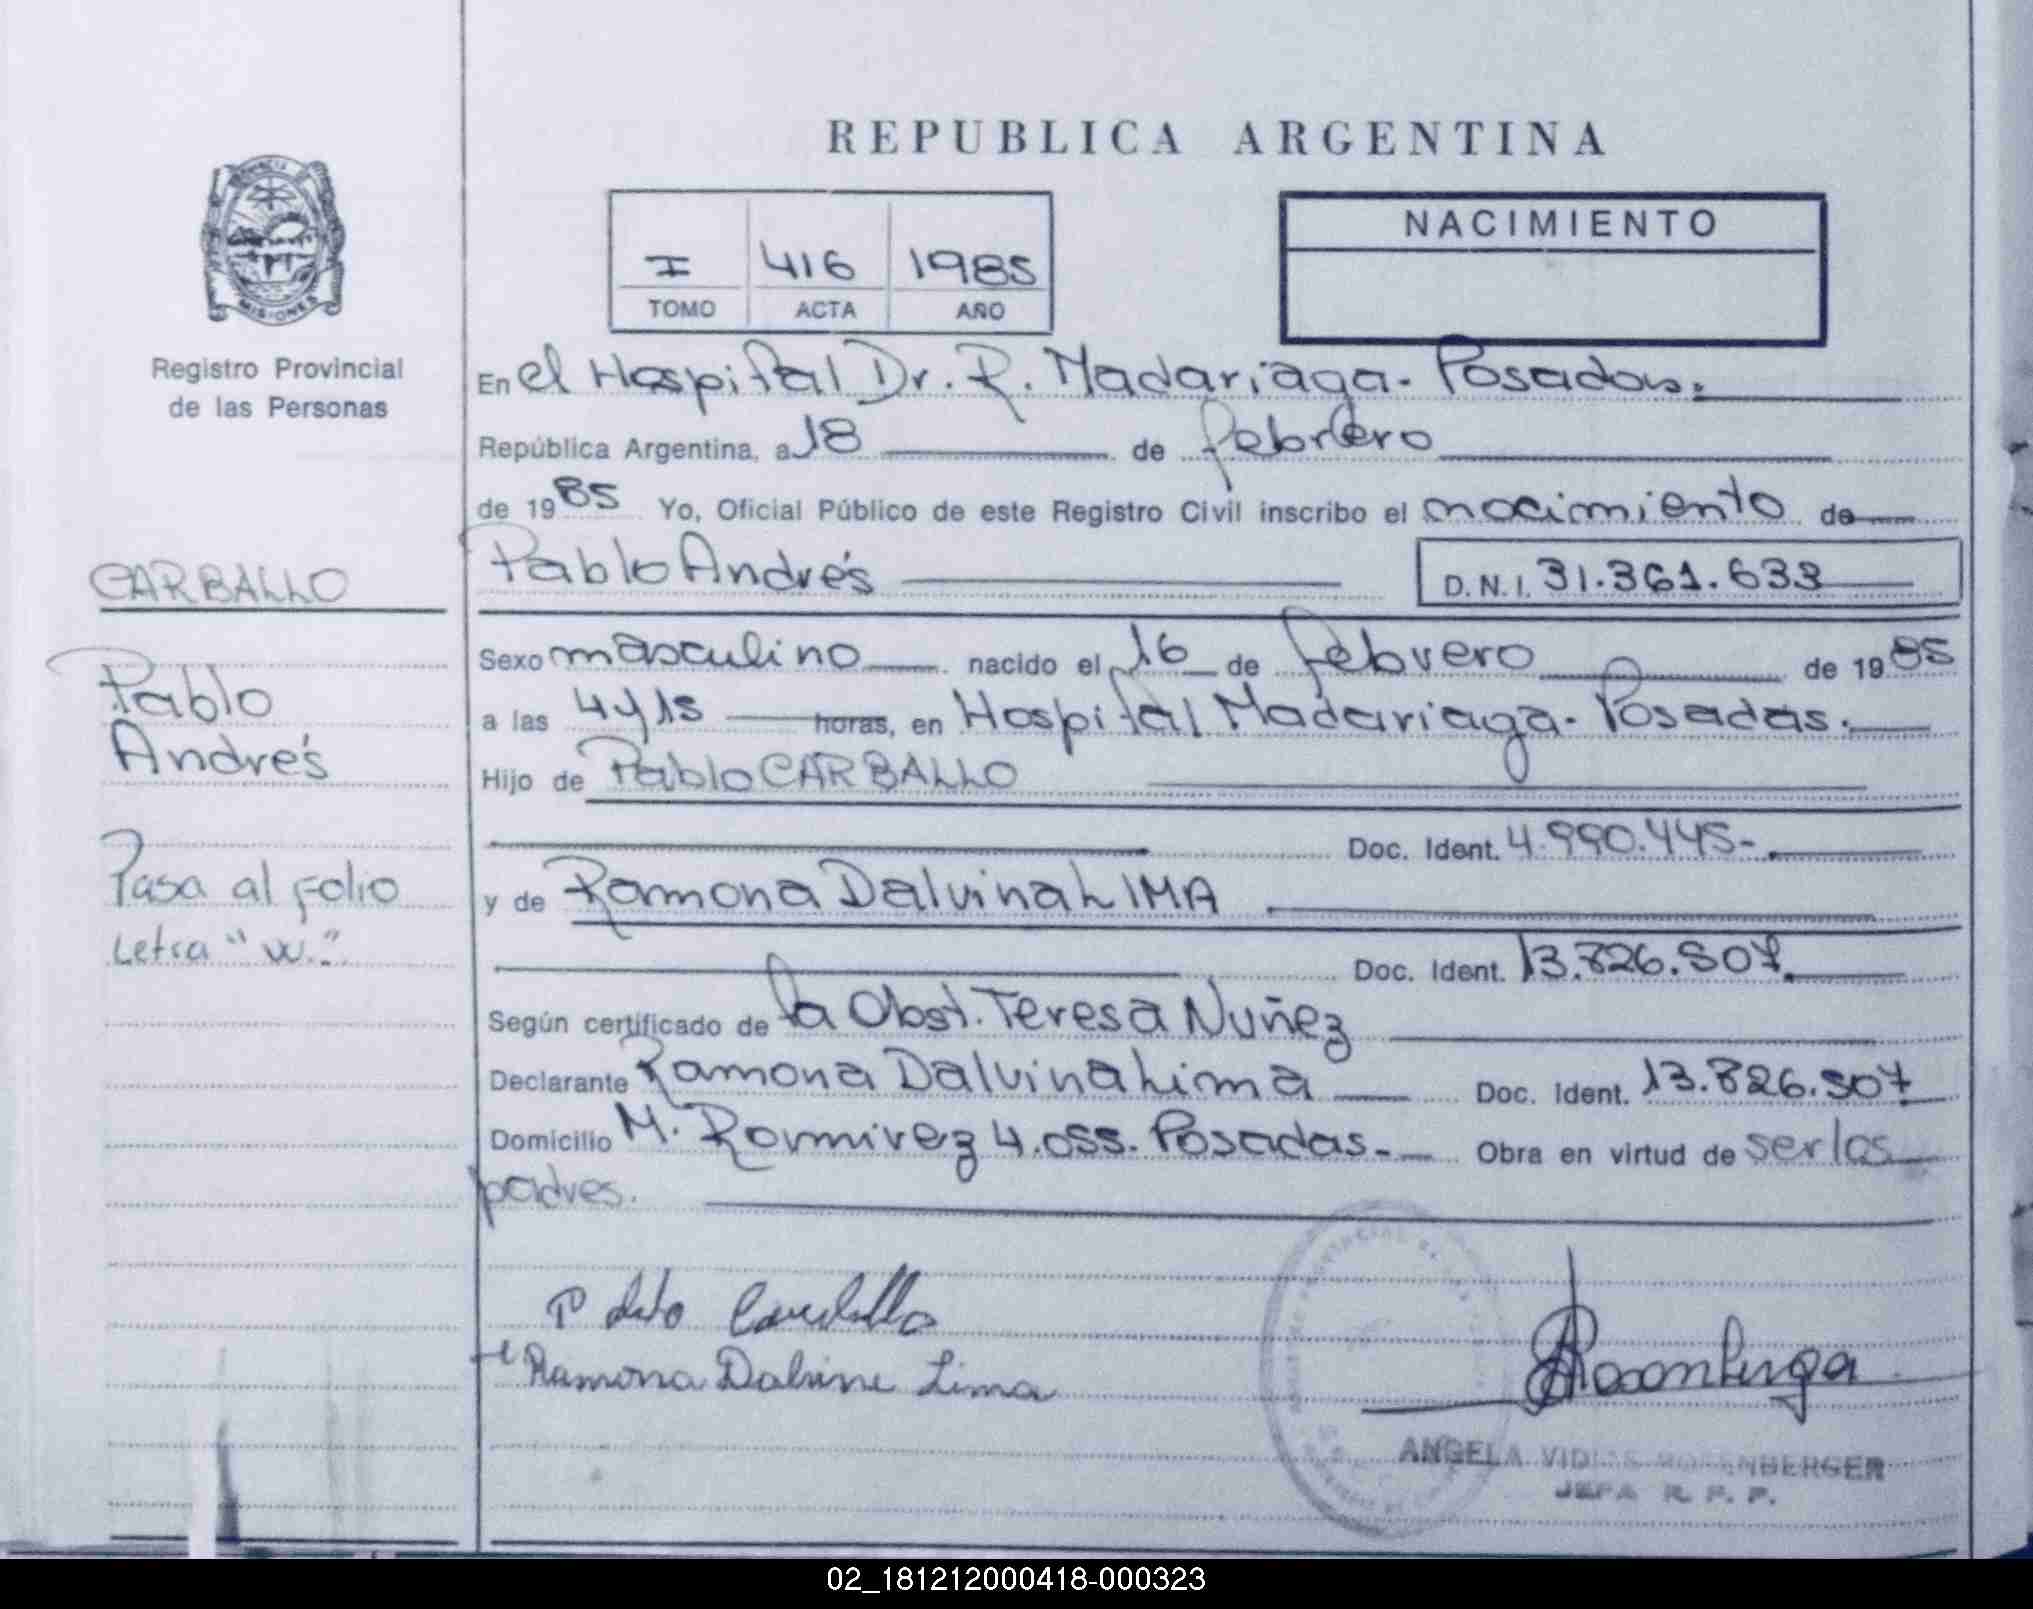 REPUBLICA ARGENTINA
PROVINCIA DE
MISIONES
Registro Provincial
de las Personas
I 416 1985
TOMO ACTA AÑO
NACIMIENTO
En el Hospital Dr. R. Madariaga - Posadas.
República Argentina, a 18 de febrero
de 1985 Yo, Oficial Público de este Registro Civil inscribo el nacimiento de
CARBALLO
Pablo Andrés D.N.I. 31.361.633
Sexo masculino nacido el 16 de febrero de 1985
Pablo
a las 4 y 15 horas, en Hospital Madariaga - Posadas.
Andrés
Hijo de Pablo CARBALLO
Doc. Ident. 4.990.445-
Pasa al folio
y de Ramona Dalvina LIMA
Letra "W."
Doc. Ident. 13.826.507
Según certificado de la Obst. Teresa Nuñez
Declarante Ramona Dalvina Lima Doc. Ident. 13.826.507
Domicilio M. Ramirez 4.055. Posadas.- Obra en virtud de ser los
padres.
Ramona Lima
ANGELA ROSENBERGER
JEFA R. P. P.
02_181212000418-000323